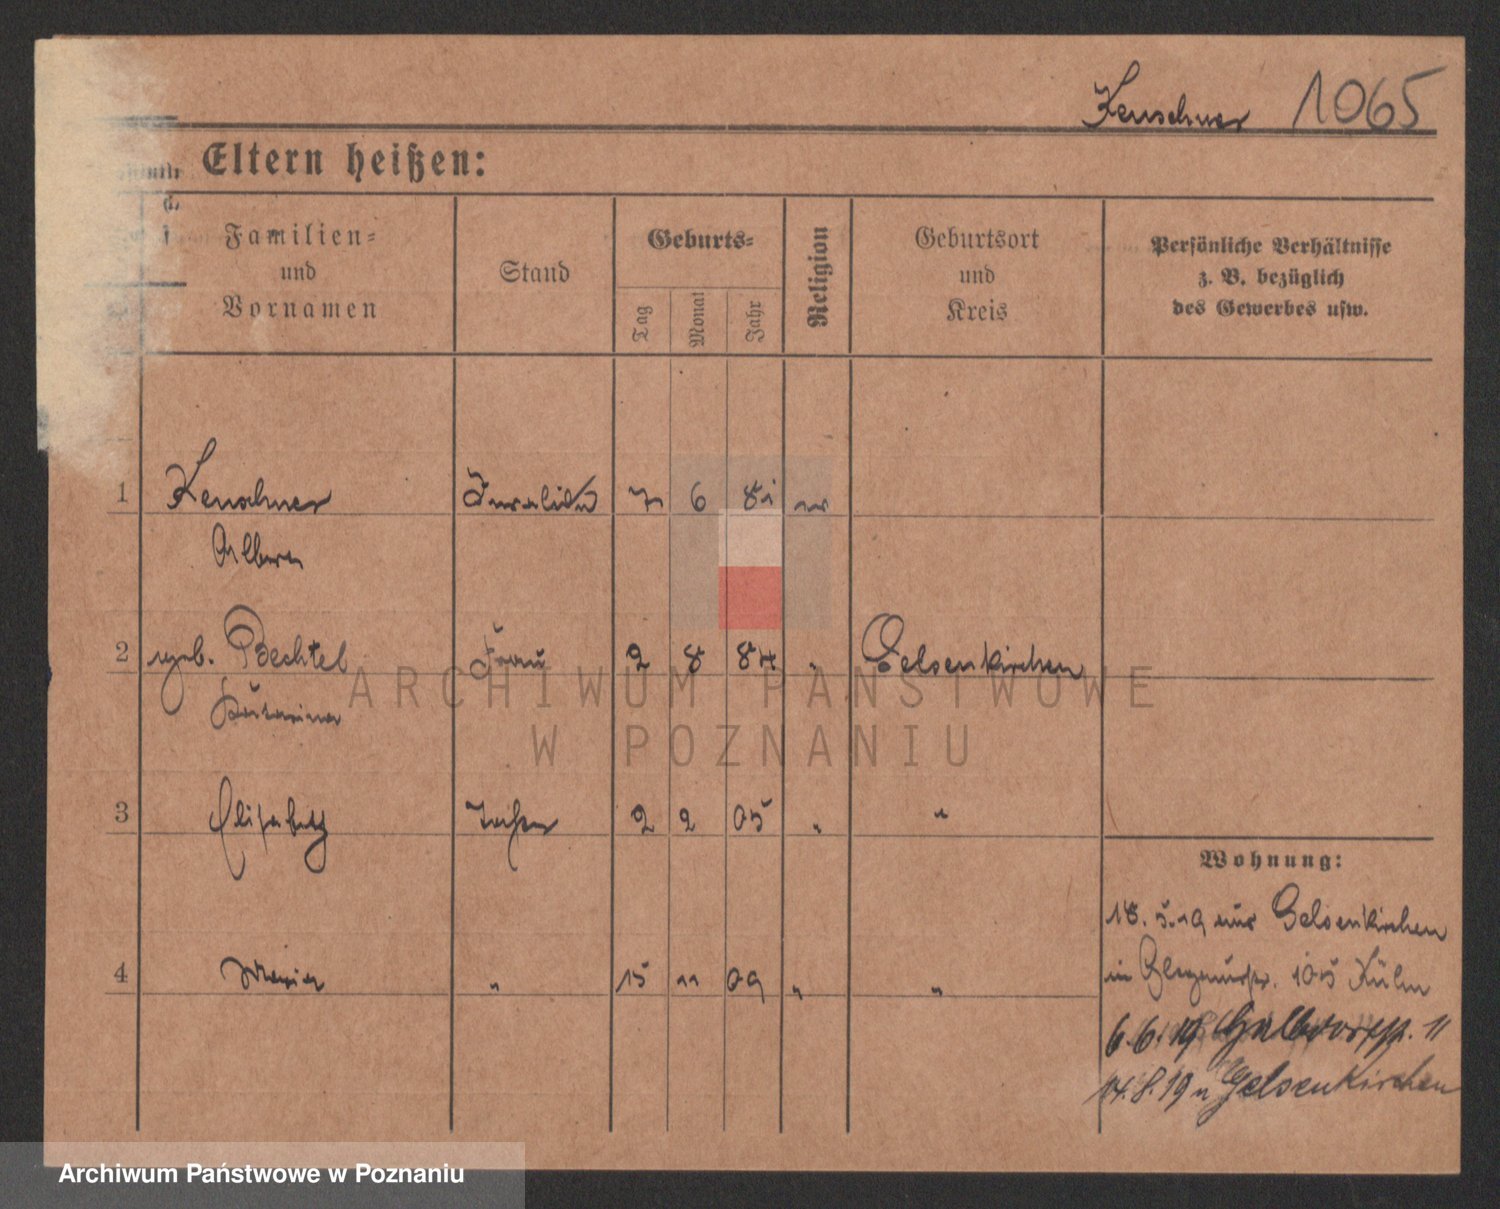 Kerschner 1065
Eltern heißen:
Familien=
und
Vornamen
Stand
Geburts=
Tag
Monat
Jahr
Religion
Geburtsort
und
Kreis
Persönliche Verhältnisse
z. B. bezüglich
des Gewerbes usw.
1 Kerschner Invalide 7 6 81
Albern
2 geb. Bechtel Frau 2 8 84 " Gelsenkirchen
Katarina
3 Elisabeth Tochter 2 2 05 " "
Wohnung:
18. 5. 19 aus Gelsenkirchen
4 Maria " 15 11 09 " "
in 105
6. 6. 19 11
14. 8. 19 n Gelsenkirchen
ARCHIWUM PAŃSTWOWE
W POZNANIU
Archiwum Państwowe w Poznaniu